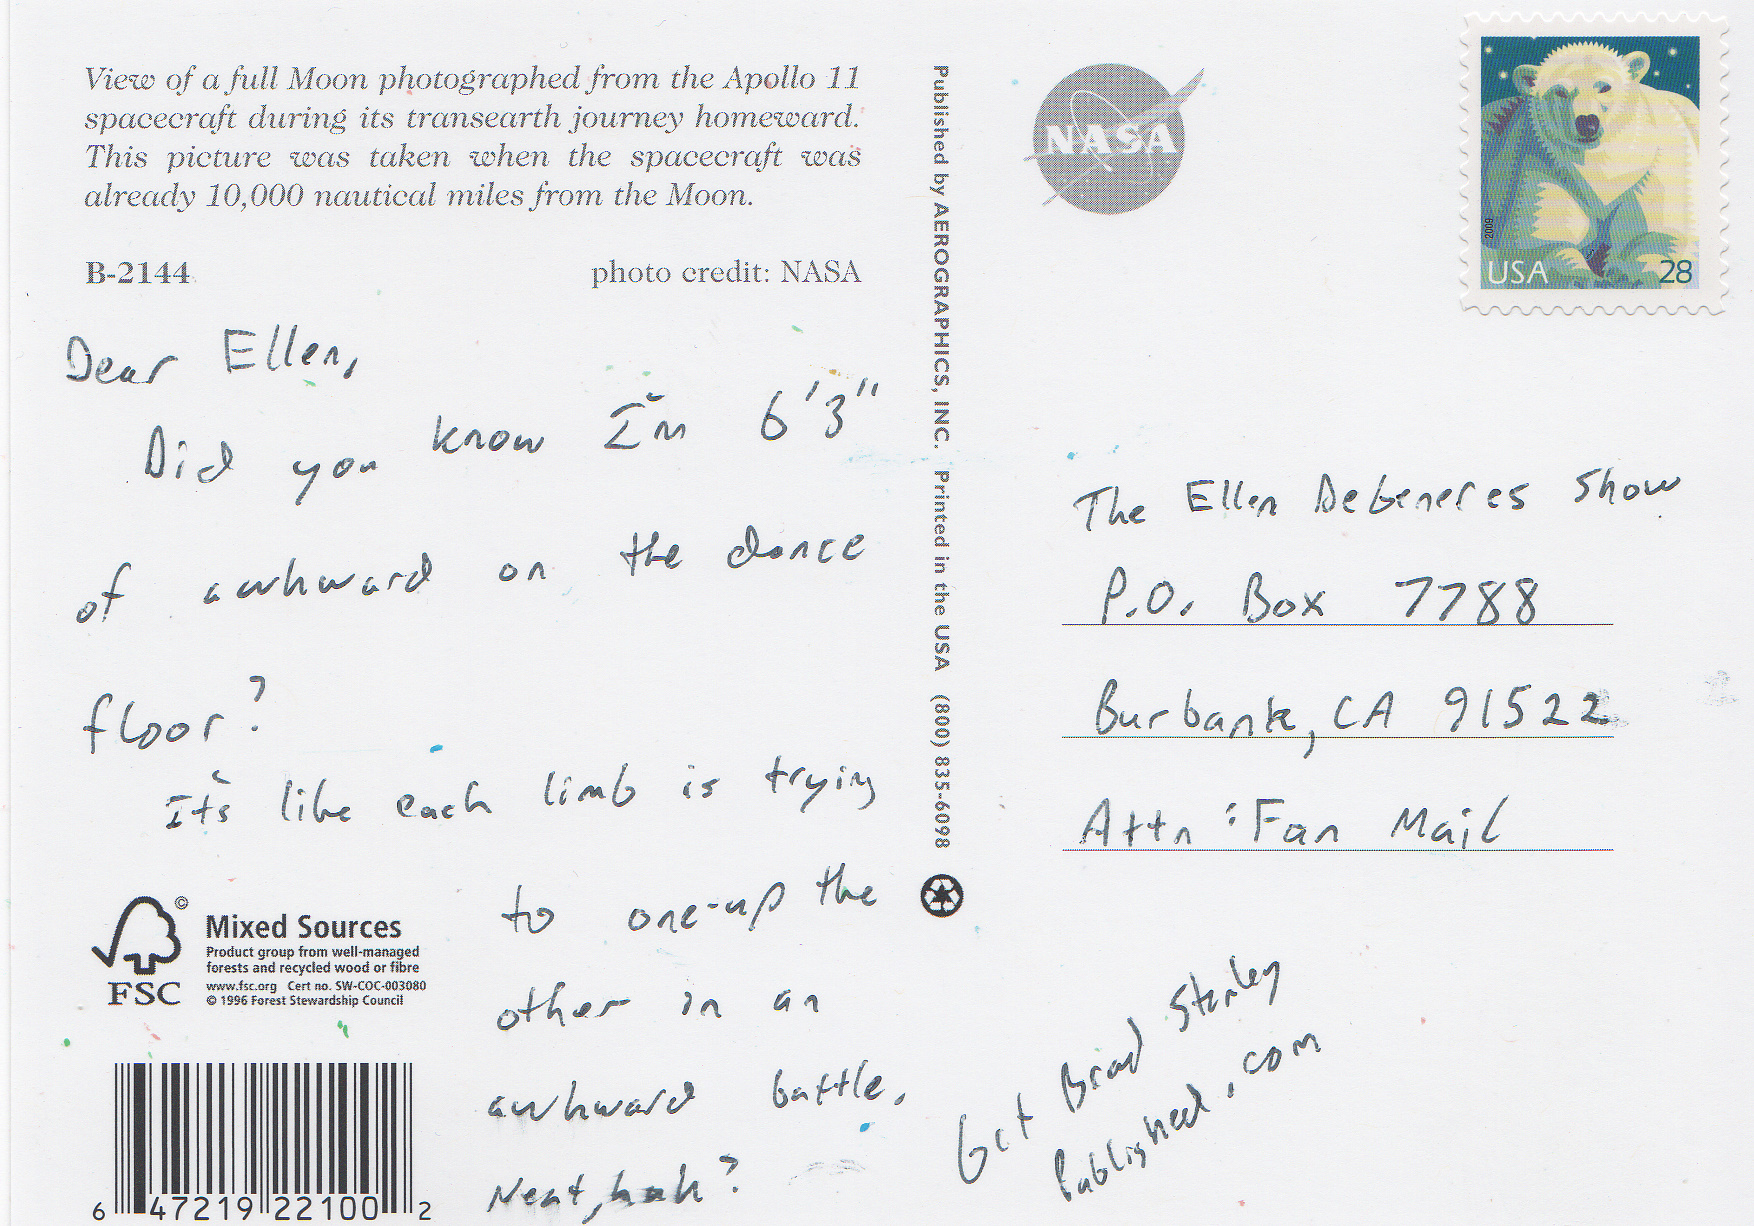 View of a full Moon photographed from the Apollo 11
spacecraft during its transearth journey homeward.
This picture was taken when the spacecraft was
already 10,000 nautical miles from the Moon.
B-2144 photo credit: NASA
Dear Ellen,
Did you know I'm 6'3"
of awkward on the dance
floor?
It's like each limb is trying
to one-up the
other in an
awkward battle.
Neat, huh?
Mixed Sources
Product group from well-managed
forests and recycled wood or fibre
www.fsc.org Cert no. SW-COC-003080
© 1996 Forest Stewardship Council
©
FSC
6 47219 22100 2
Published by AEROGRAPHICS, INC. Printed in the USA (800) 835-6098
NASA
2009
USA 28
The Ellen DeGeneres Show
P.O. Box 7788
Burbank, CA 91522
Attn: Fan Mail
Get Brad Stanley
Published.com